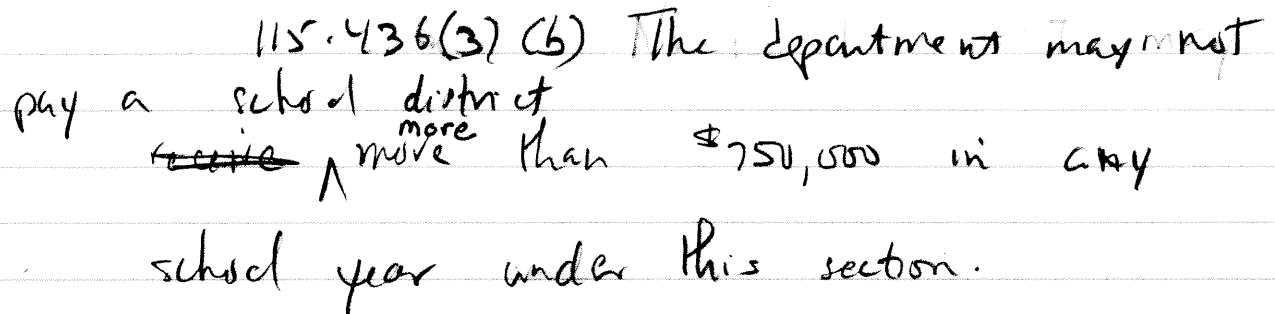 115.436(3)(b) The department may not
pay a school district
more
receive ^ more than $750,000 in any
school year under this section.